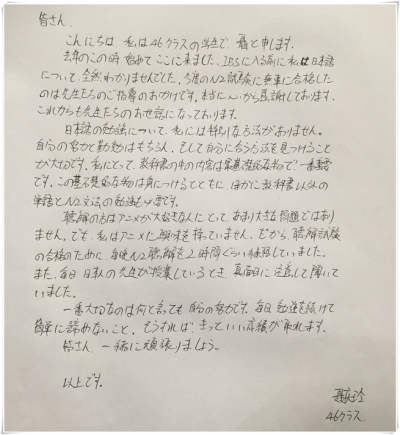 皆さん、
こんにちは、私は46クラスの学生で、聶と申します。
去年のこの頃、始めてここに来ました。IBSに入る前に私は日本語
について、全然わかりませんでした。今度のN2試験に無事に合格した
のは先生たちのご指導のおかげです。本当に心から感謝しております。
これからも先生たちのお世話になっております。
日本語の勉強について、私には特別な方法がありません。
自分の努力と勤勉はもちろん、そして自分に合う方法を見つけること
が大切です。私にとって、教科書の中の内容は基礎的なもので一番重要
です。この基礎的なものは身につけるとともに、ほかに教科書以外の
単語とN2文法の勉強も必要です。
聴解の方はアニメが大好きな人にとって、あまり大きな問題ではあり
ません。でも、私はアニメに興味を持っていません。だから、聴解試験
の合格のために、毎晩N2聴解を2時間ぐらい練習していました。
また、毎日日本人の先生が授業しているとき、真面目に注意して聞いて
いました。
一番大切なのは何と言っても自分の努力です。毎日勉強を続けて
簡単に諦めないこと。そうすれば、きっといい成績が取れます。
皆さん、一緒に頑張りましょう。
以上です。
46クラス